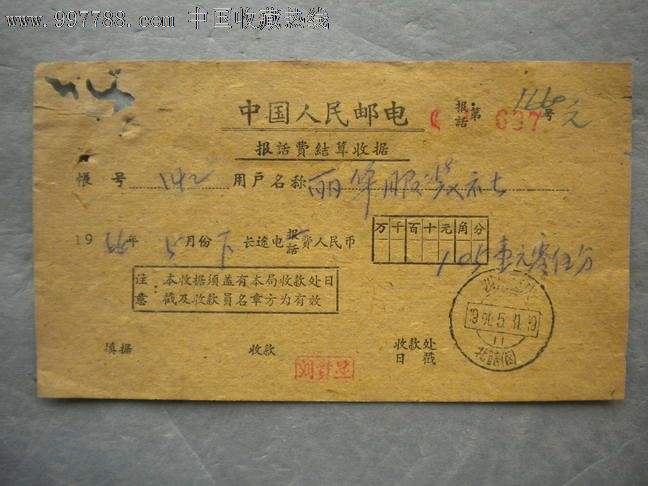 www.997788.com 中国收藏热线
中国人民邮电
报话第 697 号
报話費結算收据
帳号 142 用户名称 丽华服装社
1966年5月份下 长途电报話費人民币
万千百十元角分
1.05 壹元零伍分
注意：本收据须盖有本局收款处日戳及收款员名章方为有效
填据 收款 收款处日戳